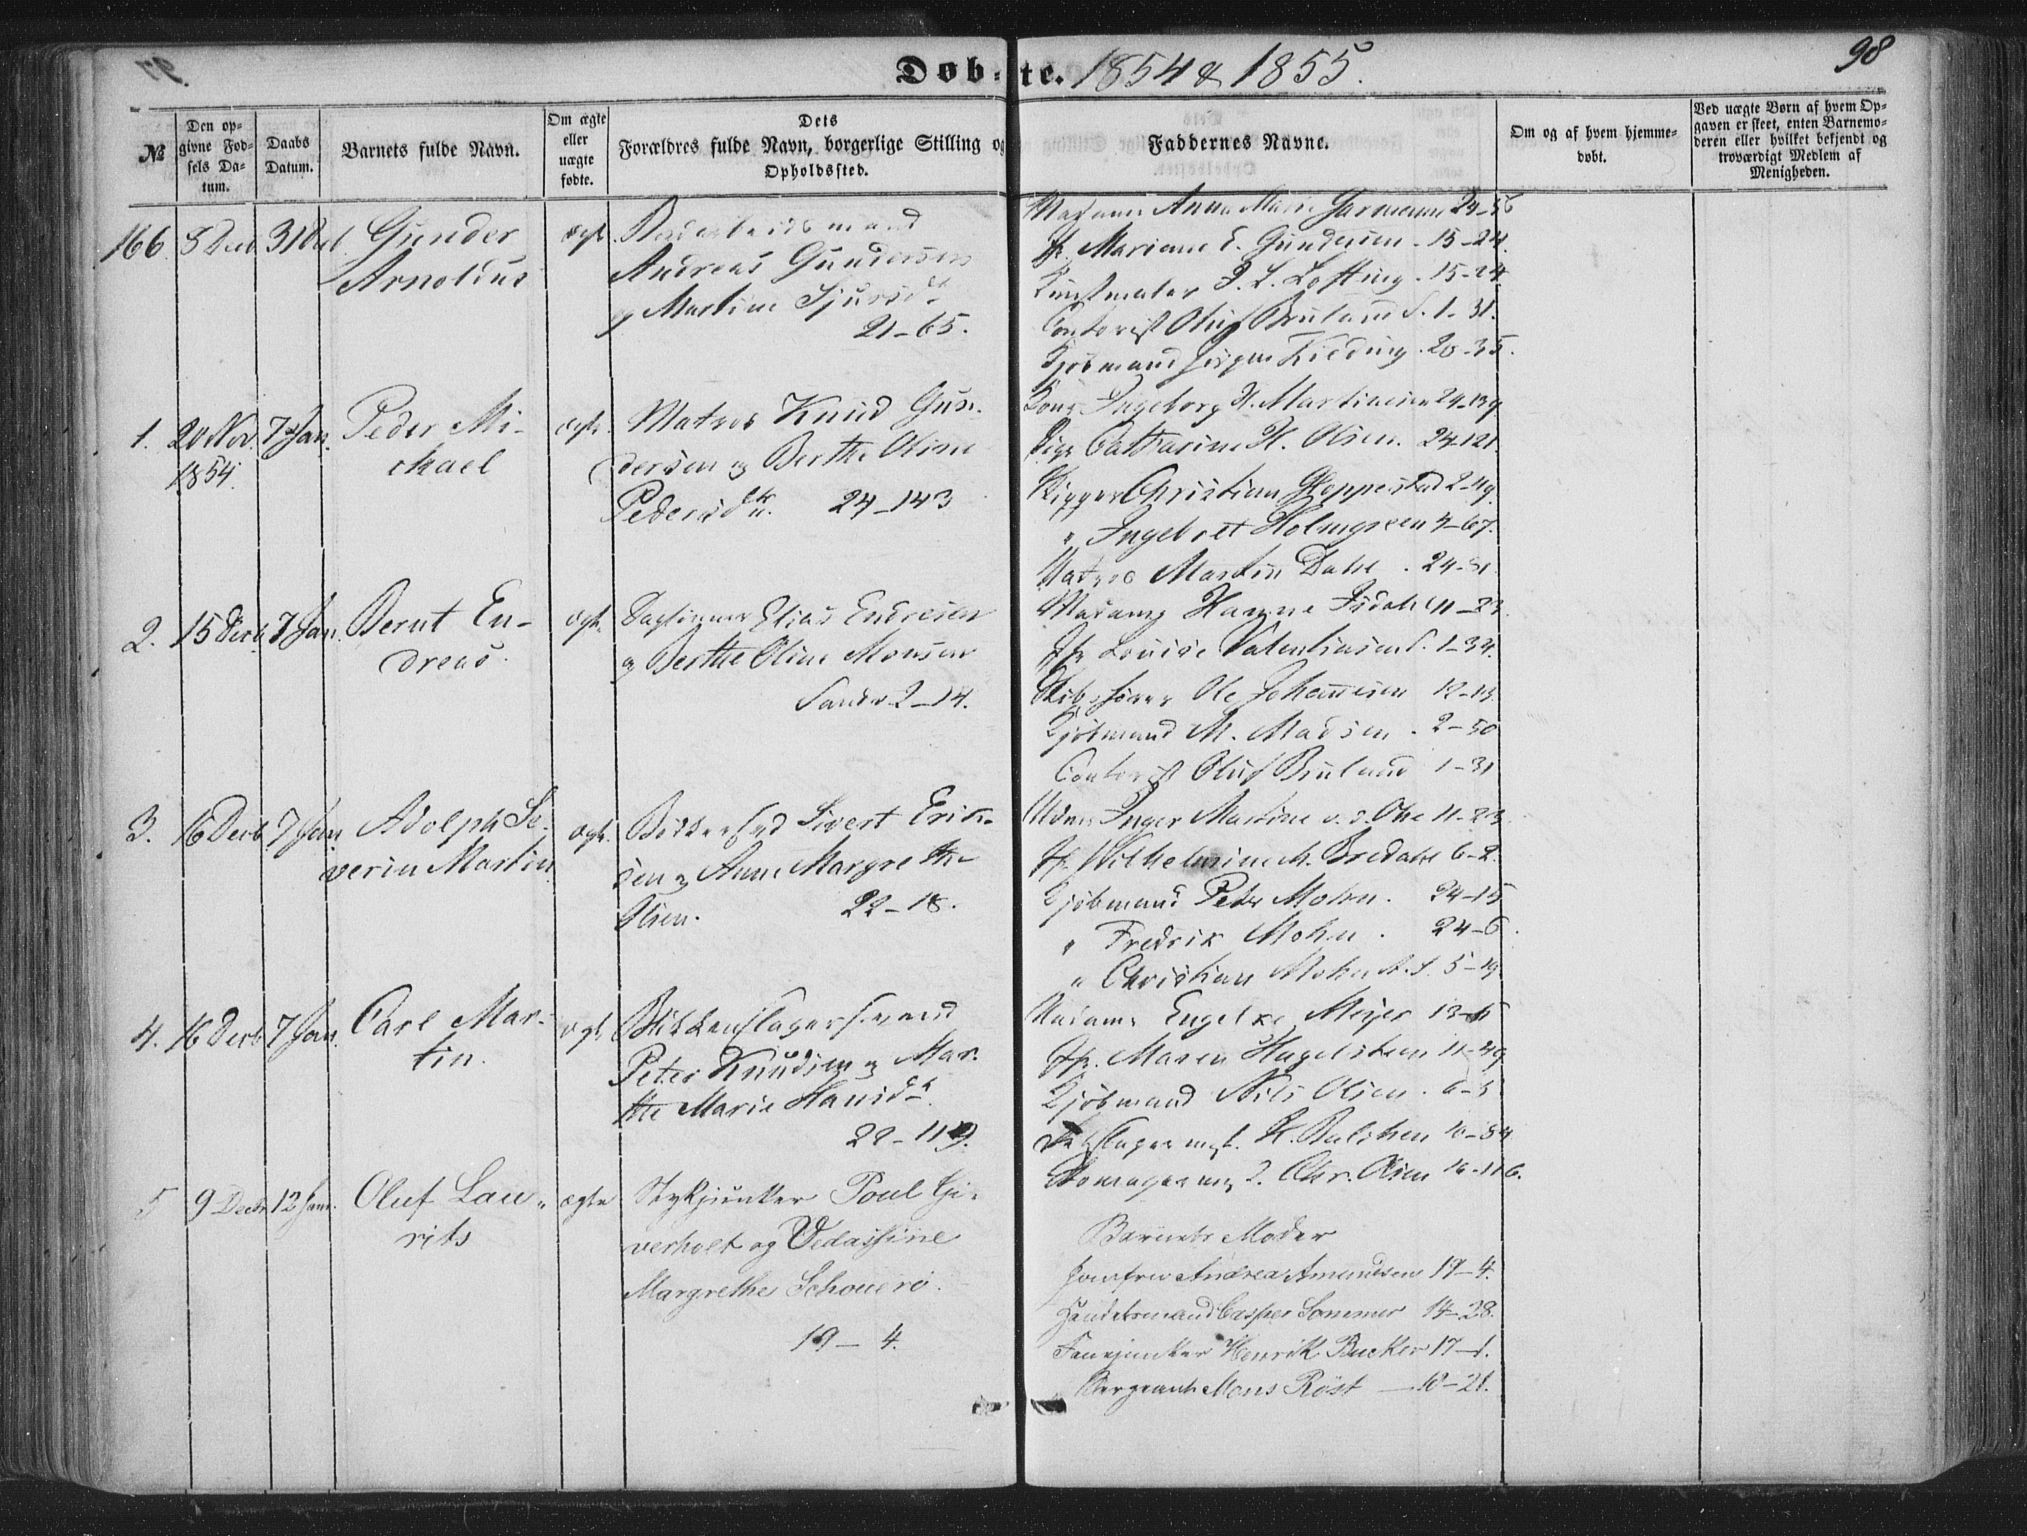 Døb-te. 1854 & 1855.
98
№
Den op-
givne Fød-
sels Da-
tum.
Daabs
Datum.
Barnets fulde Navn.
Om ægte
eller
uægte
fødte.
Dets
Forældres fulde Navn, borgerlige Stilling og
Opholdssted.
Faddernes Navne.
Om og af hvem hjemme-
døbt.
Ved uægte Børn af hvem Op-
gaven er skeet, enten Barnemo-
deren eller hvilket bekjendt og
troværdigt Medlem af
Menigheden.
166. 5 Decb 31 Gunder
Arnoldus
ægte
Andreas Gundersen
og Martine Sjursdtr
21-65.
Madame Anna Marie 24-56
Jfr. Mariane E. Gundersen. 15-24.
Kunstmaler Lofting. 15-24.
Contorist Oluf Bruland 1-31.
Kjøbmand Jørgen Fieding. 20-35.
1. 20 Nov. 7 Jan. Peder Mi-
1854. chael
ægte.
Matros Knud Gun-
dersen og Berthe Oline
Pedersdtr. 24-143
Kone Ingeborg H. Martinsen 24-139
Pige Cathrine H. Olsen. 24-121.
Christian Gloppestad 2-49.
" Ingebret Holmgreen 4-67.
Matros Martin Dahl. 24-51.
2. 15 Decb 7 Jan. Bernt En-
dreas.
ægte.
Elias Endresen
og Berthe Oline Monsen
2-14.
Madame Hanne Isdahl 11-23.
Jfr Louise Valentinsen 1-34.
Ole Johannesen 12-13.
Kjøbmand M. Madsen. 2-50
Contorist Oluf Bruland 1-31
3. 16 Decb. 7 Jan. Adolph Se-
verin Martin.
ægte.
Sivert Erik-
sen og Anne Margrethe
Olsen. 22-18.
Mdme Inger Martine v. d. Ohe 11-23
Jfr. Wilhelmine M. Bredahl 6-2.
Kjøbmand Peter Mohn. 24-15
" Fredrik Mohn. 24-6.
" Christian Mohn A. S. 5-19.
4. 16 Decb 7 Jan. Carl Mar-
tin.
ægte
Blikkenslagersvend
Peter Knudsen og Mar-
the Marie Hansdtr.
22-119.
Madame Engelke Meyer 13-
Jfr. Maren Hagelsteen 11-49
Kjøbmand Nils Olsen. 6-5
K. Balchen 10-54
Chr. Olsen 16-116.
5 9 Decbr 12 Janr. Oluf Lau-
rits
ægte
Stykjunker Poul Gi-
verholt og Vedassine
Margrethe Schouerø.
19-4.
Barnets Moder
Jomfru Andrea Amundsen 19-4.
Handelsmand Casper Sommer 14-28.
Fanejunker Henrik Bucker 17-1.
Sergeant Mons Røst - 18-21.